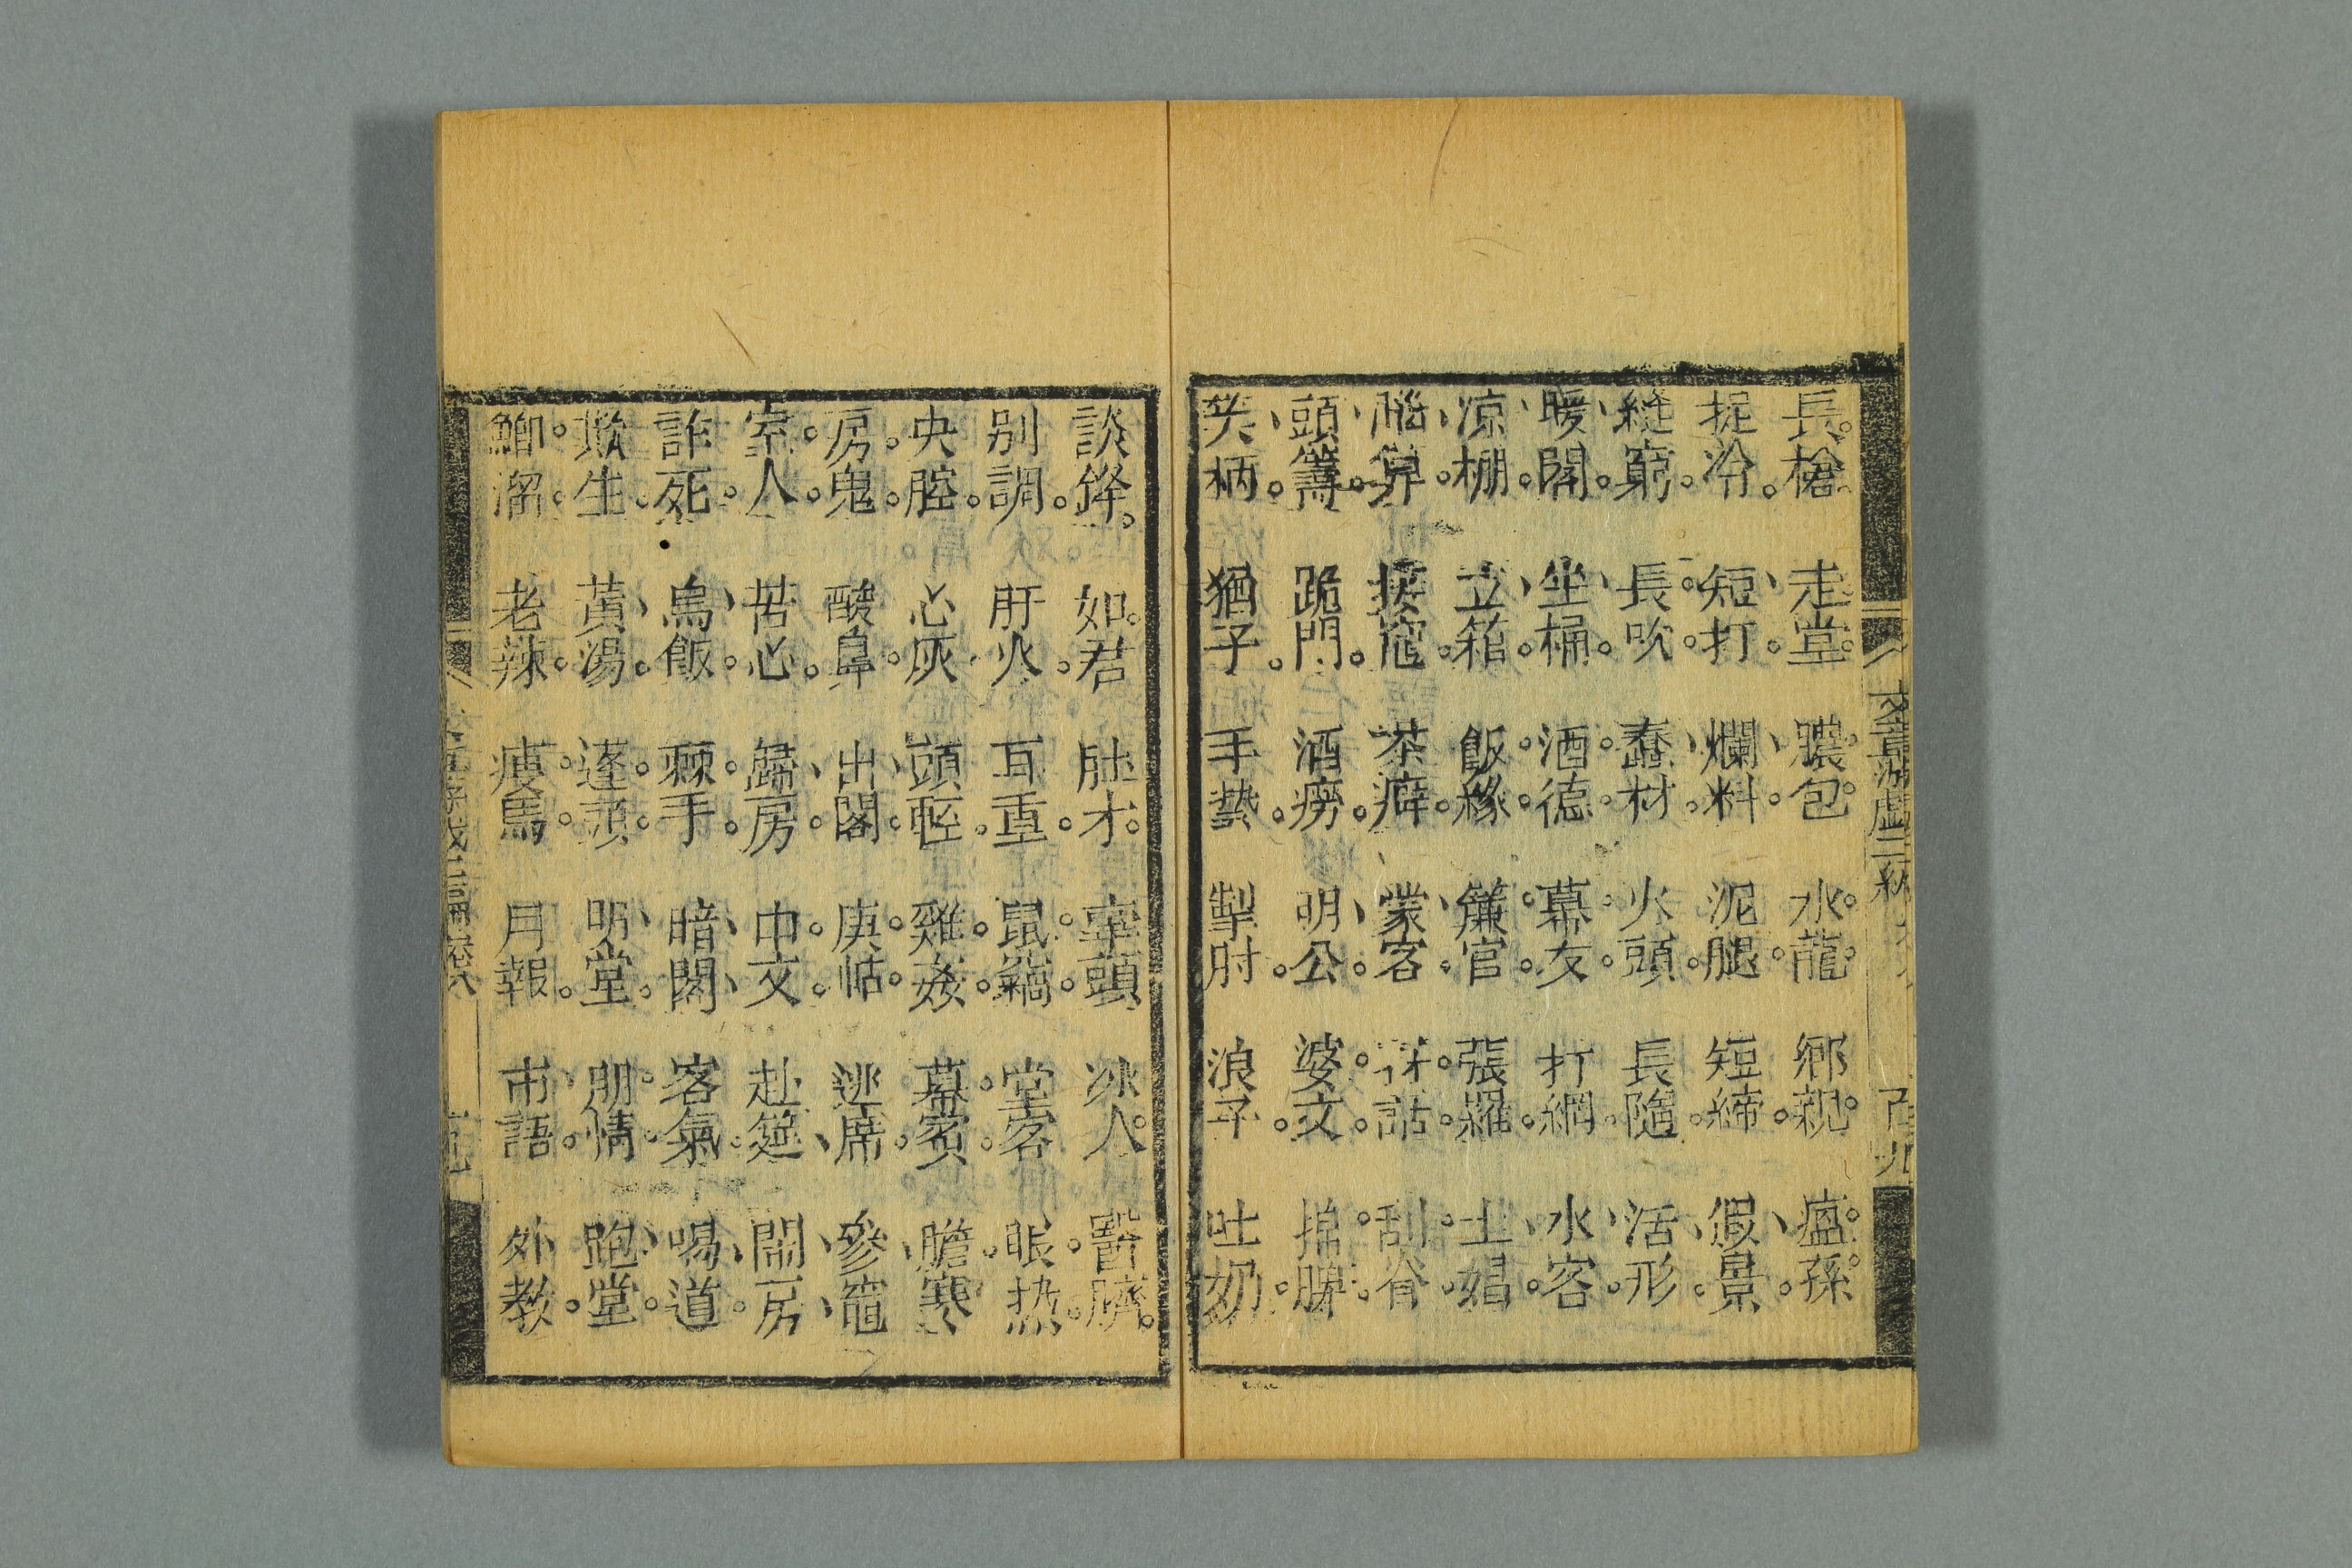 長槍。走堂。膿包。水龍。鄉親。瘟孫。
捉冷。短打。爛料。泥腿。短締。假景。
縫窮。長吹。蠢材。火頭。長隨。活形。
暖閣。坐桶。酒德。幕友。打網。水客。
凉棚。立箱。飯緣。簾官。張羅。土娼。
腦箅。挨寇。茶癖。蒙客。詁。刮脊。
頭籌。跪門。酒癆。明公。婆文。勝。
笑柄。猶子。手藝。掣肘。浪子。吐奶。
談鋒。如君。肚才。宰頭。冰人。臍。
別調。肝火。耳重。鼠竊。堂客。眼热。
央腔。心灰。頭眩。雞姦。幕賓。膽寒。
房鬼。酸鼻。出閣。庚帖。逃席。參竈。
室人。苦心。歸房。中文。赴筵。鬧房。
詐死。烏飯。棘手。暗閣。客氣。喝道。
欺生。黃湯。蓬頭。明堂。朋情。跑堂。
鯽溜。老辣。瘦馬。月報。市語。外教。
文章游戲二編